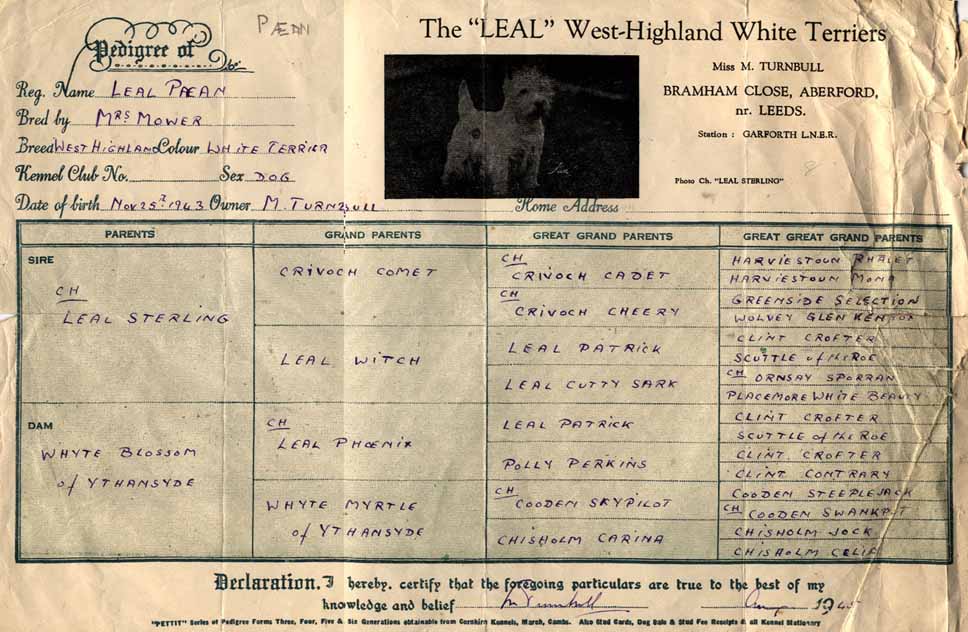 PÆAN
Pedigree of
Reg. Name LEAL PÆAN
Bred by MRS MOWER
Breed WEST HIGHLAND Colour WHITE TERRIER
Kennel Club No. Sex DOG
Date of birth Nov 25th 1943 Owner M. TURNBULL Home Address
The "LEAL" West-Highland White Terriers
Miss M. TURNBULL
BRAMHAM CLOSE, ABERFORD,
nr. LEEDS.
Station : GARFORTH L.N.E.R.
Photo Ch. "LEAL STERLING"
PARENTS
SIRE
CH
LEAL STERLING
DAM
WHYTE BLOSSOM
of YTHANSYDE
GRAND PARENTS
CRIVOCH COMET
LEAL WITCH
CH
LEAL PHOENIX
WHYTE MYRTLE
of YTHANSYDE
GREAT GRAND PARENTS
CH
CRIVOCH CADET
CH
CRIVOCH CHEERY
LEAL PATRICK
LEAL CUTTY SARK
LEAL PATRICK
POLLY PERKINS
CH
COODEN SKYPILOT
CHISHOLM CARINA
GREAT GREAT GRAND PARENTS
HARVIESTOUN RHALET
HARVIESTOUN MONA
GREENSIDE SELECTION
WOLVEY GLEN
CLINT CROFTER
SCUTTLE of the ROE
CH ORNSAY SPORRAN
PLACEMORE WHITE BEAUTY
CLINT CROFTER
SCUTTLE of the ROE
CLINT CROFTER
CLINT CONTRARY
COODEN STEEPLEJACK
CH COODEN SWANKPOT
CHISHOLM JOCK
CHISHOLM
Declaration. I hereby. certify that the foregoing particulars are true to the best of my
knowledge and belief M Turnbull Aug 1945
"PETTIT" Series of Pedigree Forms Three, Four, Five & Six Generations obtainable from Cornhirn Kennels, March, Cambs. Also Stud Cards, Dog Sale & Stud Fee Receipts & all Kennel Stationary